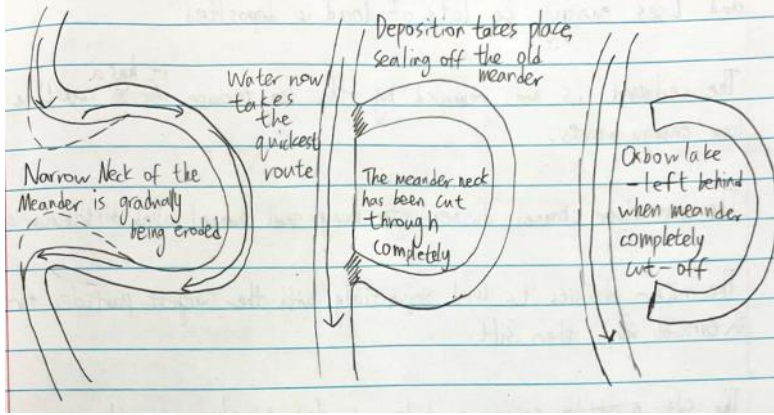 Narrow Neck of the
Meander is gradually
being eroded
Water now
takes
the
quickest
route
Deposition takes place,
sealing off the old
meander
The meander neck
has been cut
through
completely
Oxbow lake
- left behind
when meander
completely
cut-off